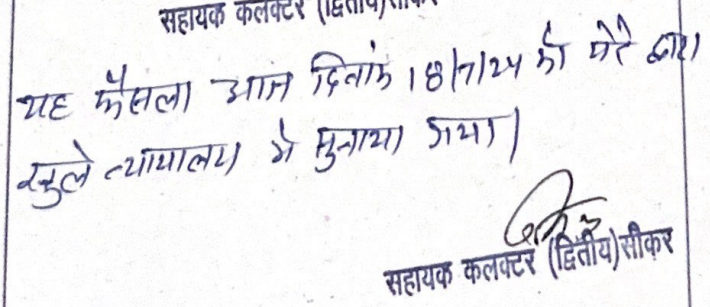 सहायक कलक्टर (द्वितीय) सीकर
यह फैसला आज दिनांक 18/7/24 को मेरे द्वारा
खुले न्यायालय में सुनाया गया।
सहायक कलक्टर (द्वितीय) सीकर